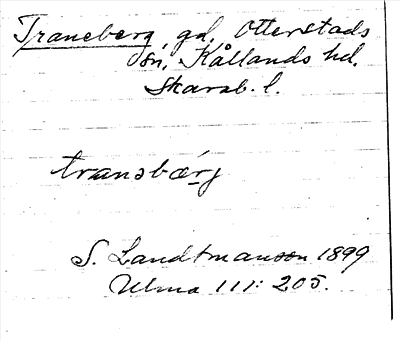 Traneberg, gd, Otterstads
sn, Kållands hd.
Skarab. l.
transbærj
S. Landtmanson 1899
Ulma 111: 205.